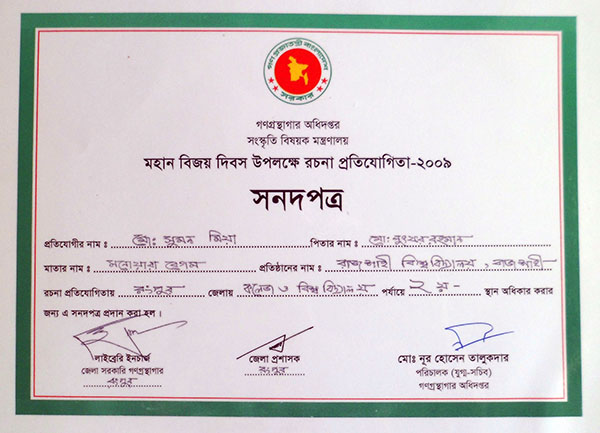 গণপ্রজাতন্ত্রী বাংলাদেশ
সরকার
গণগ্রন্থাগার অধিদপ্তর
সংস্কৃতি বিষয়ক মন্ত্রণালয়
মহান বিজয় দিবস উপলক্ষে রচনা প্রতিযোগিতা-২০০৯
সনদপত্র
প্রতিযোগীর নাম : মোঃ সুমন মিয়া পিতার নাম : মোঃ লুৎফর রহমান
মাতার নাম : মনোয়ারা বেগম প্রতিষ্ঠানের নাম : রাজশাহী বিশ্ববিদ্যালয়, রাজশাহী
রচনা প্রতিযোগিতায় রংপুর জেলায় কলেজ ও বিশ্ববিদ্যালয় পর্যায়ে ২য়- স্থান অধিকার করার
জন্য এ সনদপত্র প্রদান করা হল।
লাইব্রেরি ইনচার্জ জেলা প্রশাসক মোঃ নূর হোসেন তালুকদার
জেলা সরকারি গণগ্রন্থাগার রংপুর পরিচালক (যুগ্ম-সচিব)
রংপুর গণগ্রন্থাগার অধিদপ্তর